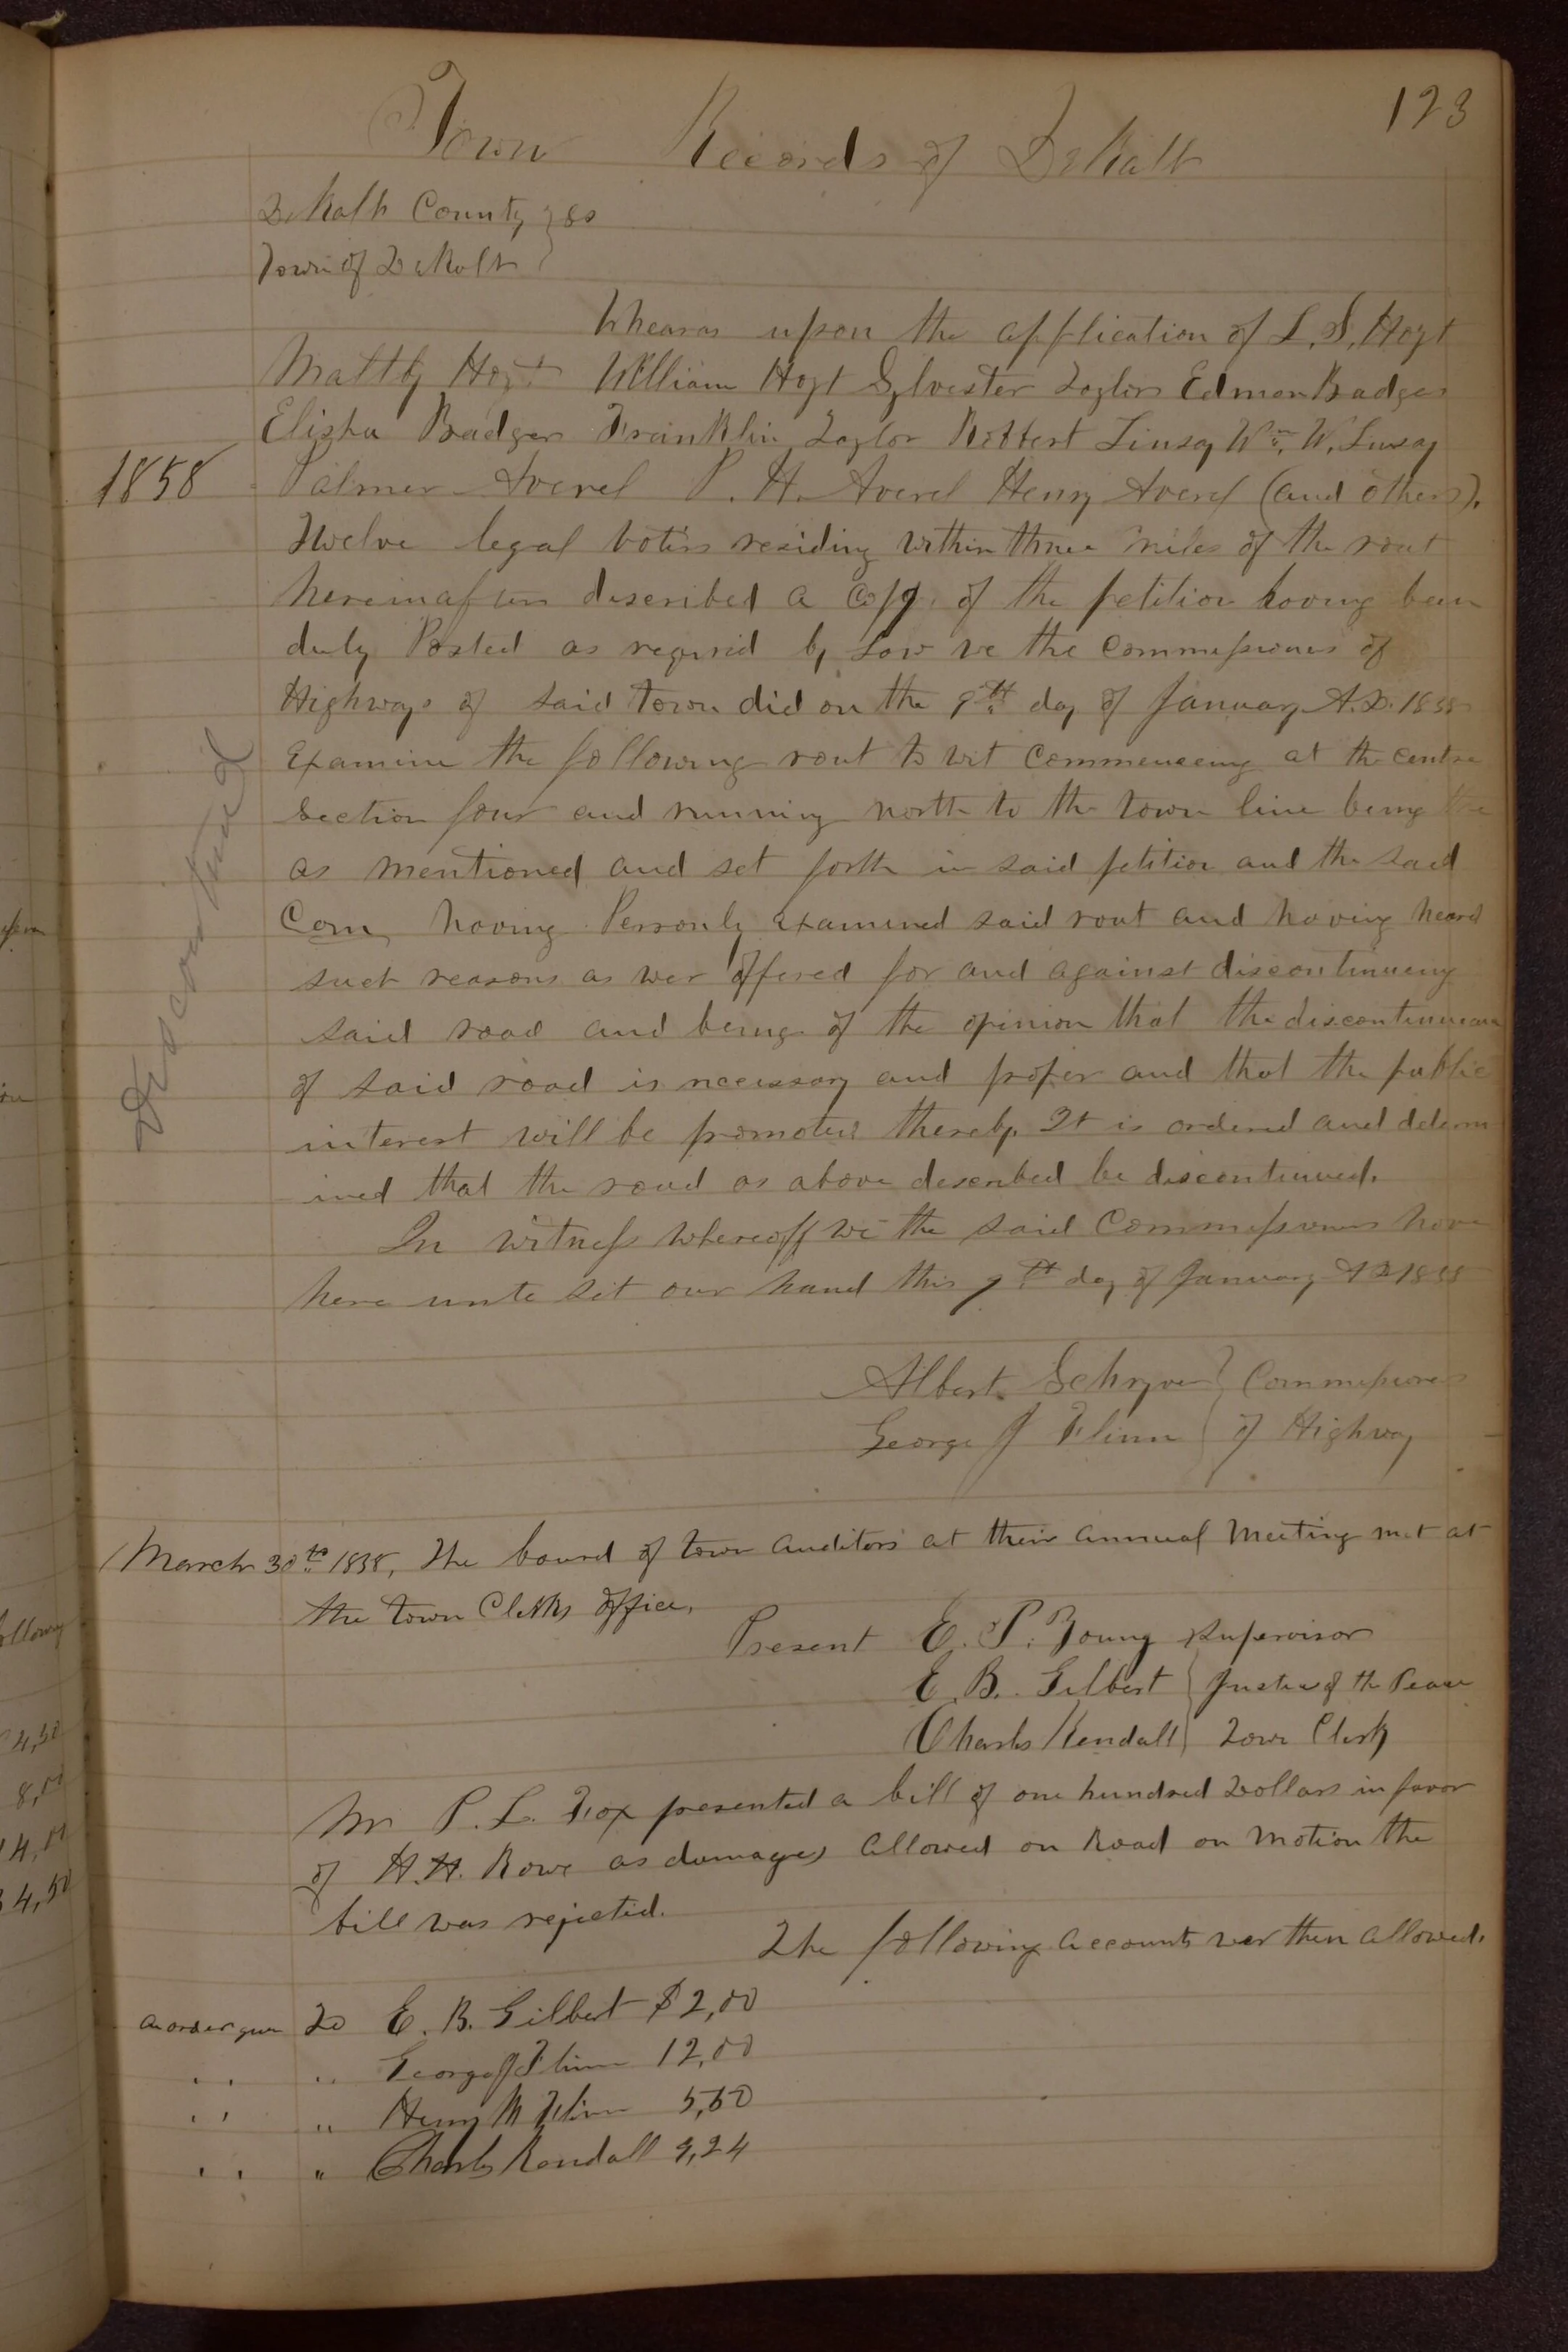 123
Town Records of DeKalb
DeKalb County } ss
Town of DeKalb }
Wheras upon the application of L. S. Hoyt
Maltby Hoyt William Hoyt Sylvester Taylor Edmon Badger
Elisha Badger Franklin Taylor Robbert Linsay Wm. W. Linsay
1858 Palmer Averel P. H. Averel Henry Averel (and others).
Twelve legal voters residing within three miles of the rout
hereinafter described a copy of the petition having been
duly Posted as required by Law we the Commissioners of
Highways of said town did on the 9th day of January A.D. 1858
Examine the following rout to wit Commenceing at the centre
Section four and running north to the town line being the
as mentioned and set forth in said petition and the said
Com having Personly examined said rout and having heard
such reasons as wer offered for and against discontinueing
said road and being of the opinion that the discontinueance
of said road is necessary and proper and that the public
interest will be promoted thereby. It is ordered and determ
ined that the road as above described be discontinued.
Discontinued
In witness whereoff we the said Commissioners have
here unto set our hand this 9th day of January A D 1858
Albert Schryver } Commissioners
George J Flinn } of Highway
March 30th 1858, The board of town auditors at their annual Meeting met at
the town Clerks office,
Present E. P. Young Supervisor
E. B. Gilbert } Justice of the Peace
Charles Kendall } Town Clerk
Mr P. L. Fox presented a bill of one hundred Dollars in favor
of H. H. Rowe as damages allowed on Road on Motion the
bill was rejected.
The following accounts wer then allowed.
an order given To E. B. Gilbert $ 2,00
" " " George J Flinn 12,00
" " " Henry M Flinn 5,50
" " " Charles Kendall 9,24